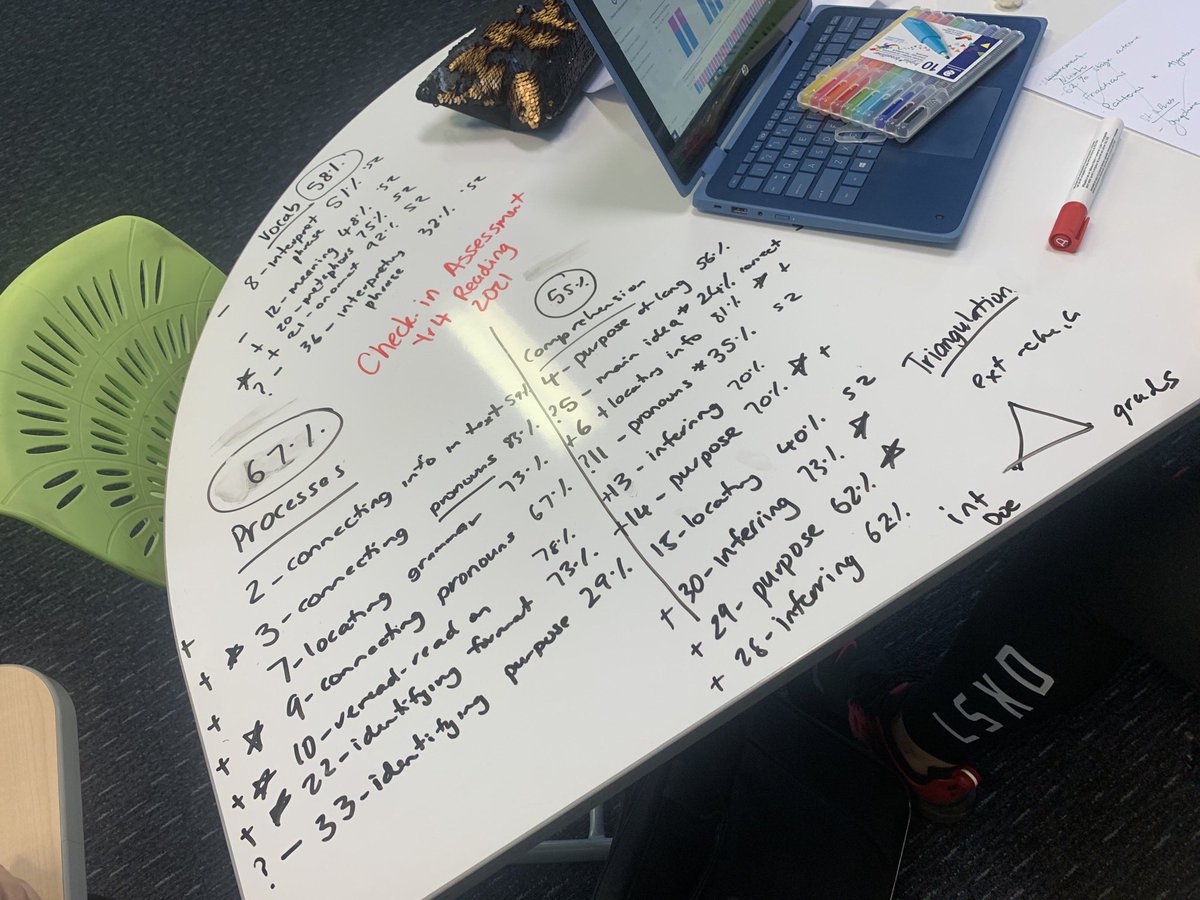 Check-in Assessment
Yr 4 Reading
2021
Vocab 58%
- 8 - interpret phrase 51% S2
- 12 - meaning 48% S2
+ 20 - metaphors 75% S2
* + 21 - onomat 92% S2
? - 36 - interpreting phrase 32% S2
67%
Processes
+ 2 - connecting info in text 59%
+ * 3 - connecting pronouns 83%
+ 7 - locating grammar 73%
+ * 9 - connecting pronouns 67%
+ * 10 - reread - read on 78%
+ * 22 - identifying format 73%
? - 33 - identifying purpose 29%
55%
Comprehension
4 - purpose of 56%
? 5 - main idea * 24% correct
+ 6 + locating info 81% * +
? 11 - pronouns * 35% S2
+ 13 - inferring 70%
+ 14 - purpose 70% * +
15 - locating 40% S2
+ 30 - inferring 73% *
+ 29 - purpose 62% *
+ 28 - inferring 62%
Triangulation
ext - chk.in
grads
int
DoE
Number
Fractions
Patterns
10
LSKD